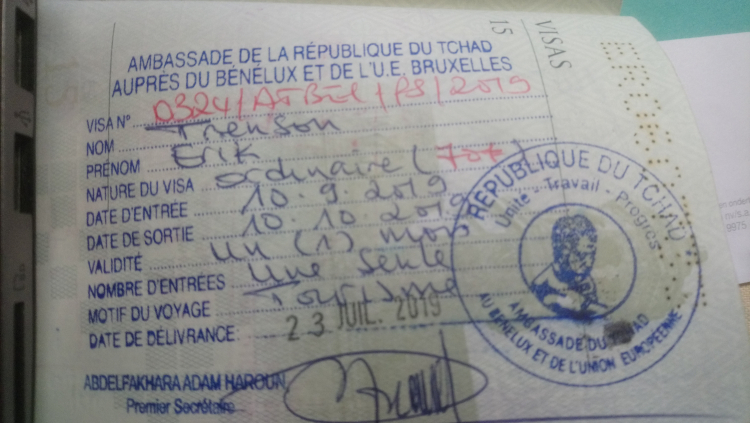 VISAS
15
AMBASSADE DE LA RÉPUBLIQUE DU TCHAD
AUPRÈS DU BÉNÉLUX ET DE L'U.E. BRUXELLES
VISA N° 0324/ATBEL/PS/2019
NOM Trenson
PRÉNOM Erik
NATURE DU VISA ordinaire (70€)
DATE D'ENTRÉE 10.9.2019
DATE DE SORTIE 10.10 2019
VALIDITÉ un (1) mois
NOMBRE D'ENTRÉES Une seule
MOTIF DU VOYAGE Tourisme
DATE DE DÉLIVRANCE 23 JUIL. 2019
ABDELFAKHARA ADAM HAROUN
Premier Secrétaire
RÉPUBLIQUE DU TCHAD
Unité - Travail - Progrès
AMBASSADE DU TCHAD
AU BENELUX ET DE L'UNION EUROPÉENNE
9975